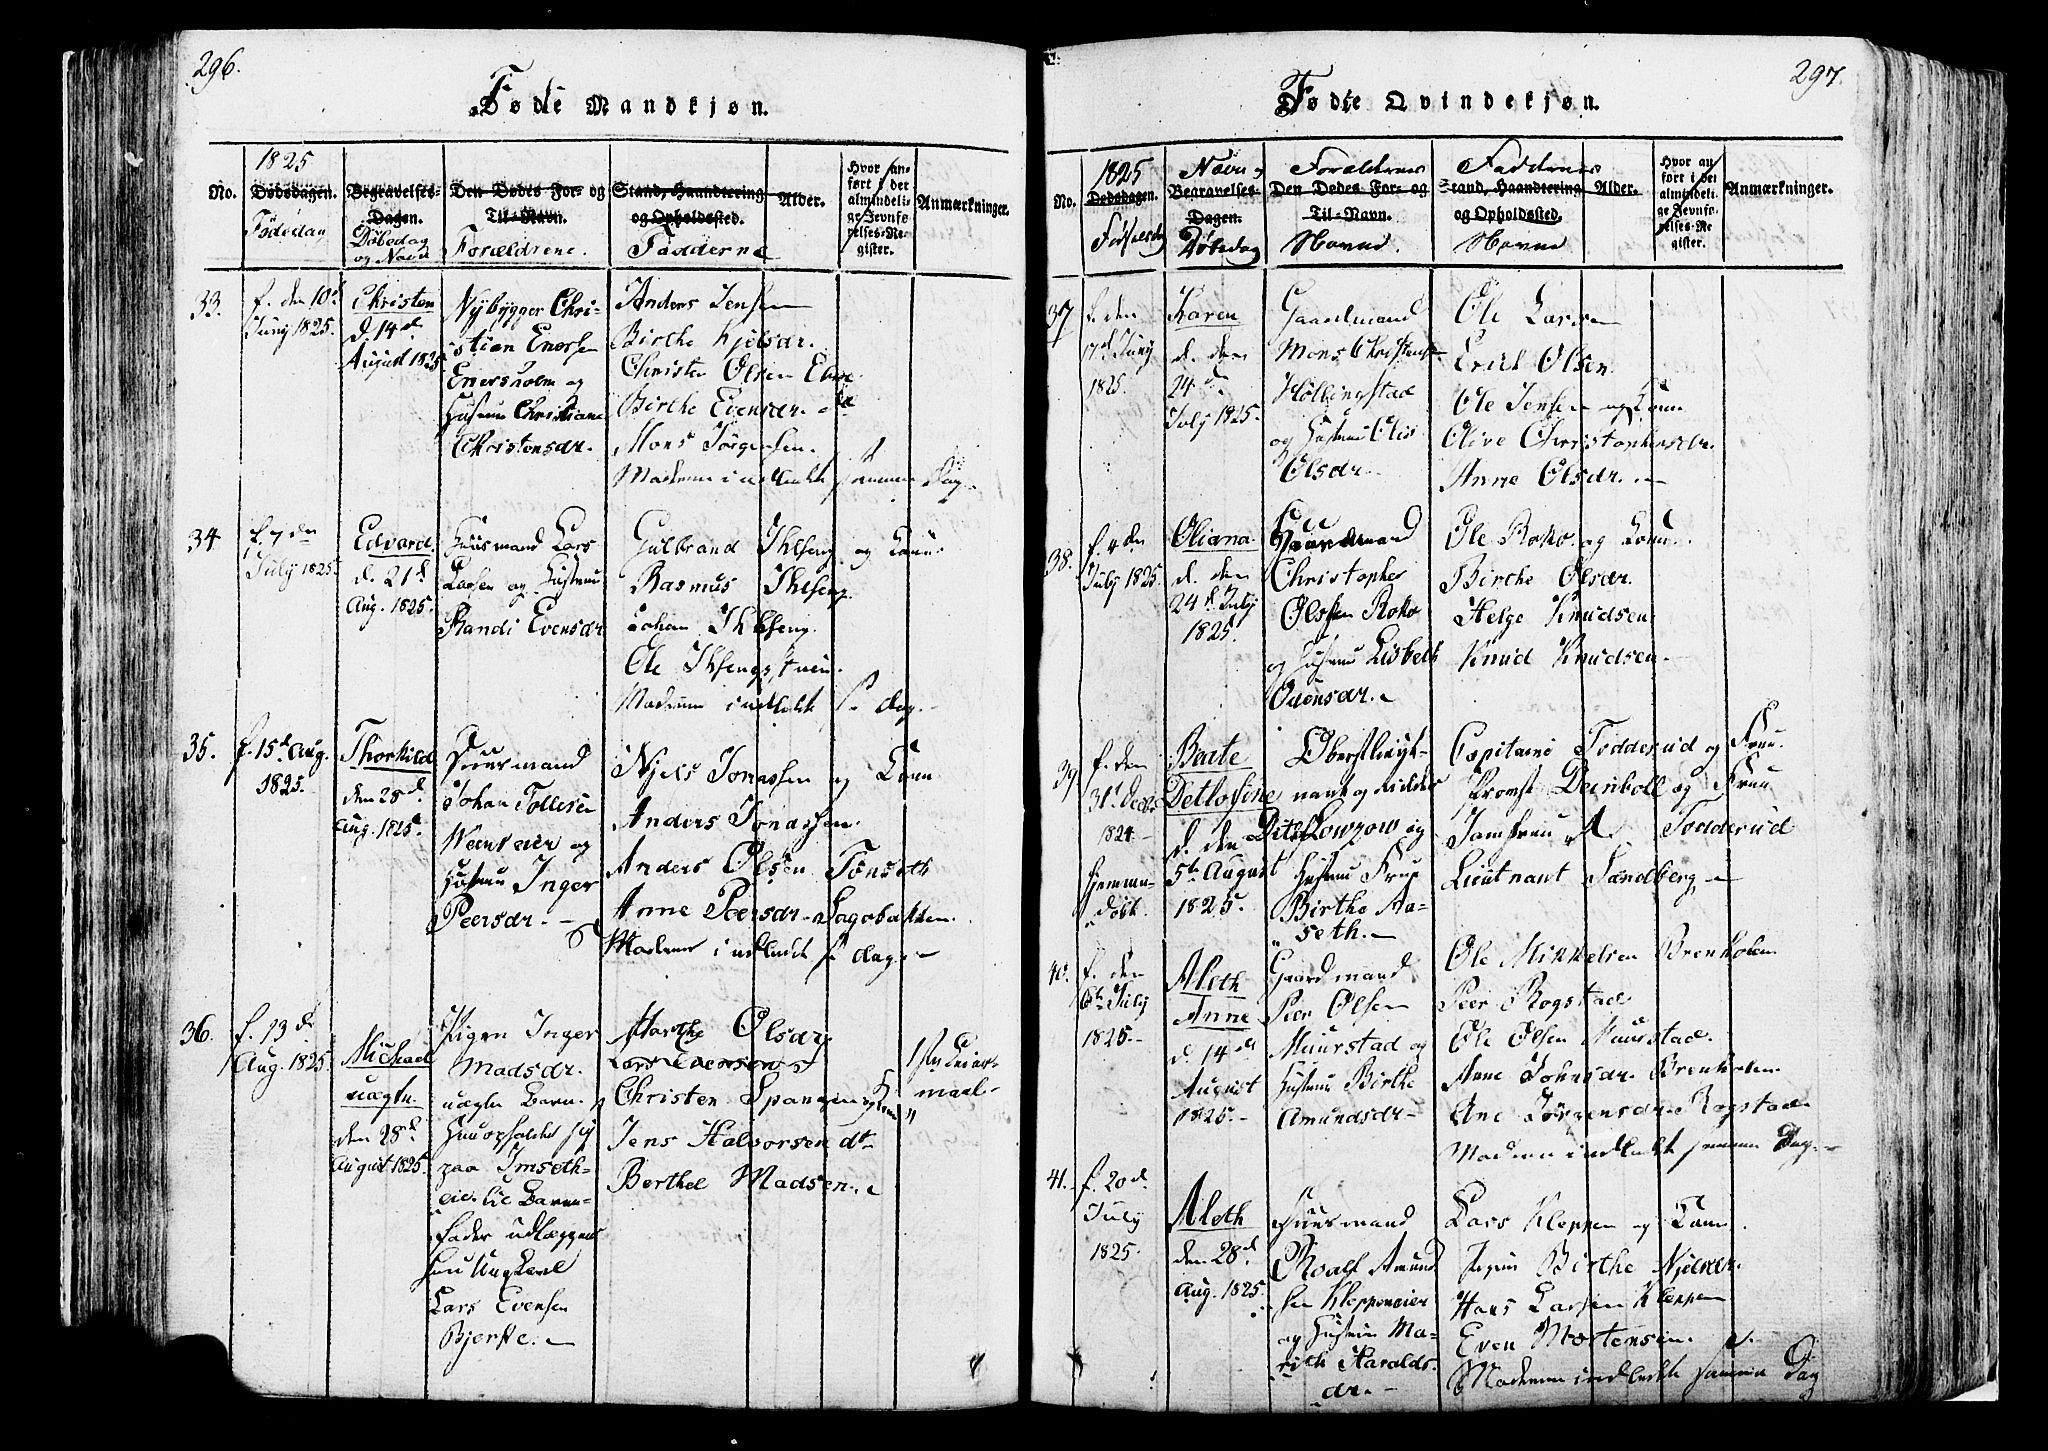 296.
Føde Mandkjøn.
No.
1825
Dødsdagen.
Fødedag
Begravelses-
Dagen.
Døbedag
og Navn
Den Dødes For- og
Til-Navn.
Forældrene.
Stand, Haandtering
og Opholdssted.
Fadderne
Alder.
Hvor an-
ført i det
almindeli-
ge Jevnfø-
relses-Re-
gister.
Anmærkninger.
33.
f. den 10d
Juny 1825.
Christen
d. 14d
August 1825
Nybygger Chri-
stian Enersen
Enersholm og
Hustrue Christiane
Christensdr.
Anders Jensen
Birthe Kjelsdr.
Christen Olsen
Birthe Evensdr.
Mons Jørgensen.
Moderen indledt samme Dag.
34
f. 7 den
July 1825.
Edvard.
d. 21d
Aug. 1825.
Huusmand Lars
Larsen og Hustrue
Randi Evensdr
Gulbrand Ihlseng og Kone.
Rasmus Ihlseng.
Johan Ihlseng.
Ole Ihlsengstuen.
Moderen indledt s. dag.
35.
f. 15d Aug.
1825.
Thorkild
den 28d.
Aug. 1825.
Huusmand
Johan Tollefsen
og
Hustrue Inger
Peersdr.
Niels Jonassen og Kone
Anders Jonassen.
Anders Olsen Tønseth
Anne Peersdr. Sagbakken.
Moderen indledt s. dag.
36.
f. 13d
Aug. 1825.
Michael
uægte.
den 28d.
August 1825.
Pigen Inger
Madsdr.
uægte Barn.
Hun opholdt sig
paa Imseth-
eie. Til Barne-
fader udlægges
Ungkarl
Lars Evensen
Bjerke.
Marthe Olsdr
Lars Evensen
Christen Spangen
Jens Halvorsen dt
Berthel Madsen.
297.
Fødte Qvindekjøn.
No.
1825
Dødsdagen.
Fødselsdag
Navn og
Begravelses-
Dagen.
Døbedag
Forældrenes
Den Dødes For- og
Til-Navn.
Navne.
Faddernes
Stand, Haandtering
og Opholdssted.
Navne
Alder.
Hvor an
ført i det
almindeli-
ge Jevnfø-
relses-Re-
gister.
Anmærkninger.
37
f. den
17d Juny
1825.
Karen
d. den
24d
July 1825.
Gaardmand
Mons Christensen
Hollingstad
og Hustrue Olia
Olsdr.
Ole Larsen
Eril Olsen.
Ole Jensen og Kone
Olive Christophersdr.
Anne Olsdr.
38.
f. 4den
July 1825.
Oliana.
d. den
24d July
1825.
Christopher
Olssen Roko
og Hustrue Lisbeth
Odensdr.
Ole Roko og Kone.
Birthe Olsdr.
Helge Knudsen
Knud Knudsen.
39
f. den
31t Decbr
1824
hjemme-
døbt.
Beate
Detlofine
d. den
5te August
1825.
Oberstlieut-
nant og Ridder
Ditlef Lowzow og
Hustrue Frue
Birthe Aa-
seth.
Capitaine Todderud og Frue.
Provst Deinboll og Frue
Jomfrue A. Todderud
Lieutnant Sandberg
40.
f. den
6te July
1825.
Aleth
Anne
d. 14d
August
1825.
Gaardmand
Peer Olsen
Muurstad og
Hustrue Birthe
Amundsdr
Ole Mikkelsen Brenholen
Peer Rogstad
Ole Olsen Muurstad.
Anne Johnsdr. Brenholen
Ane Jørgensdr. Rogstad
Moderen indledt samme Dag.
41.
f. 20d.
July
1825.
Aleth
den 28d.
Aug. 1825.
Huusmand
Roalf Amund
sen Kleppeneier
og Hustrue Ma-
rith Haralds-
dr.
Lars Kleppen og Kone.
Pigen Birthe Njelsdr.
Hans Larsen Kleppen
Even Mortensen.
Moderen indledt samme Dag